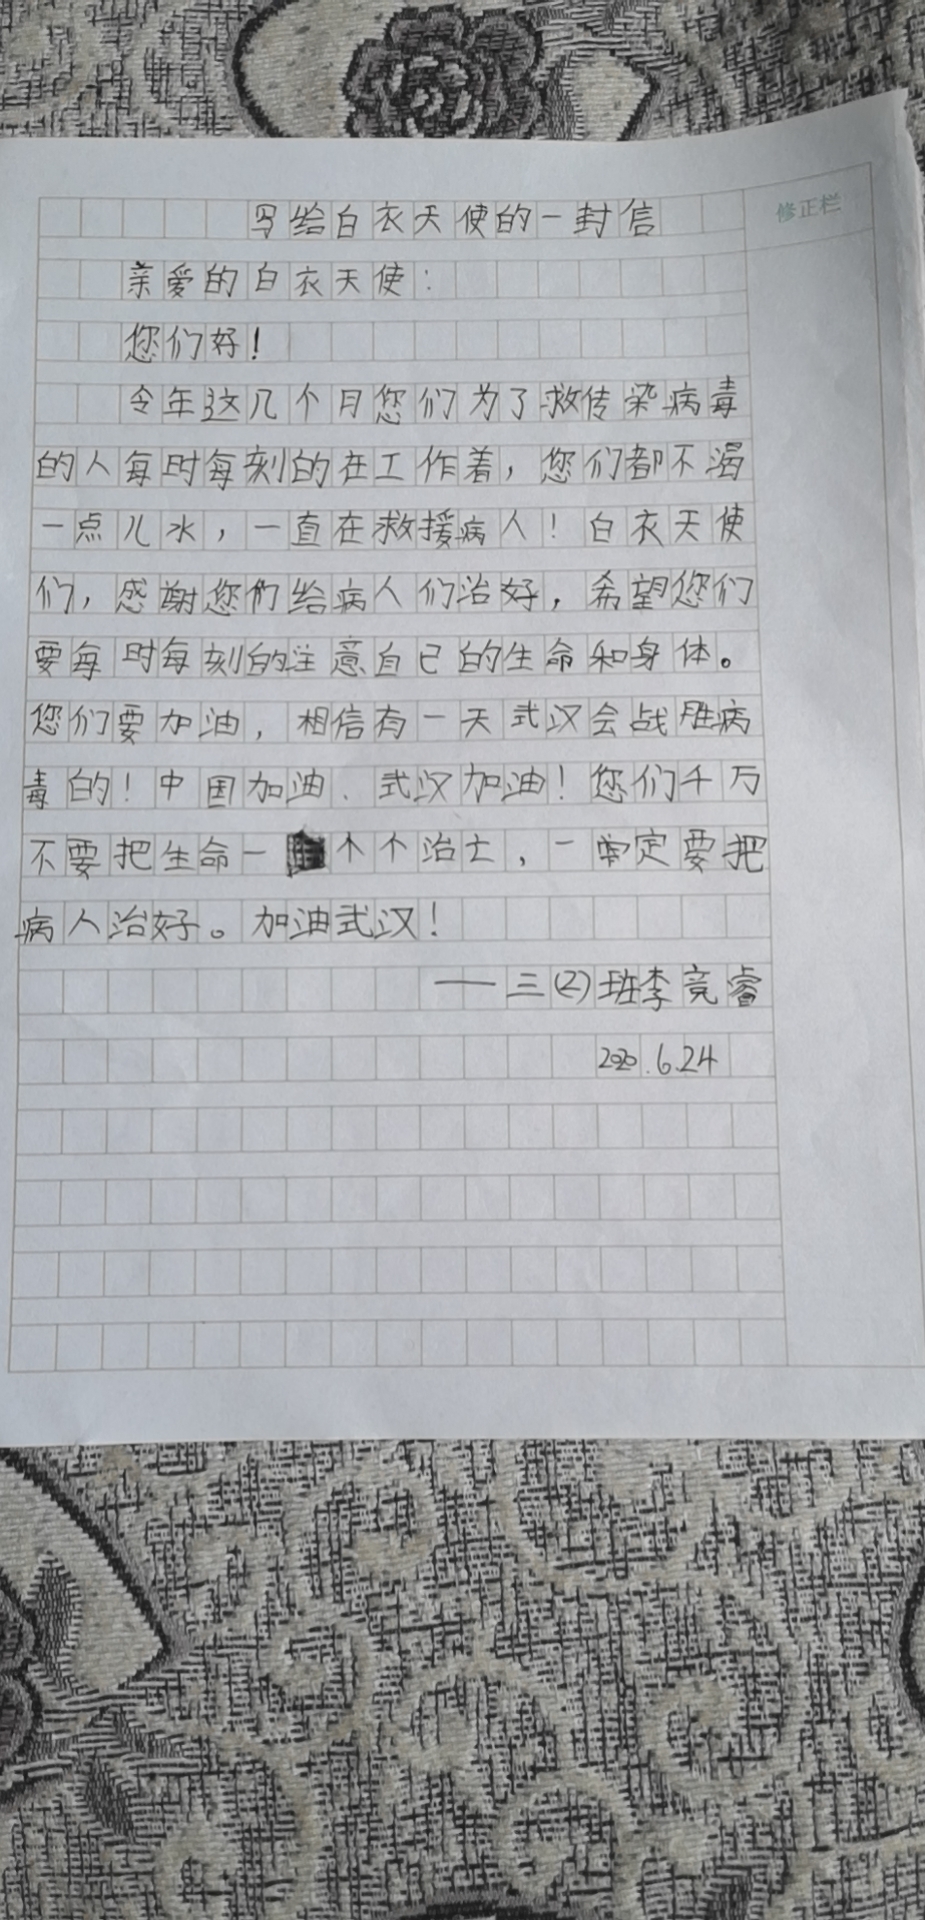 写给白衣天使的一封信
修正栏
亲爱的白衣天使：
您们好！
令年这几个月您们为了救传染病毒
的人每时每刻的在工作着，您们都不渴
一点儿水，一直在救援病人！白衣天使
们，感谢您们给病人们治好，希望您们
要每时每刻的注意自已的生命和身体。
您们要加油，相信有一天武汉会战胜病
毒的！中国加油、武汉加油！您们千万
不要把生命一个个治士，一定要把
病人治好。加油武汉！
——三(2)班李竞睿
2020.6.24